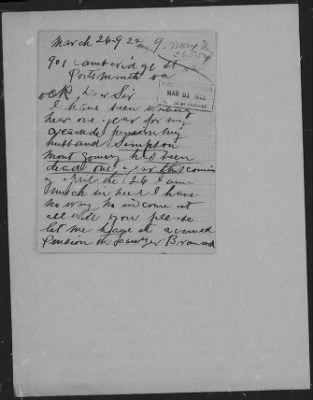 March 26-9 22
901 cambridge st
Portsmouth va
Dear Sir
I have been writing
here one year for my
pension my
husband Simpson
Mont gomery has been
dead one year this comin
april the 26 I am
much in need I have
no way no income at
all will you please
let me have the accrued
Pension the Lawyer
MAR 31 1922